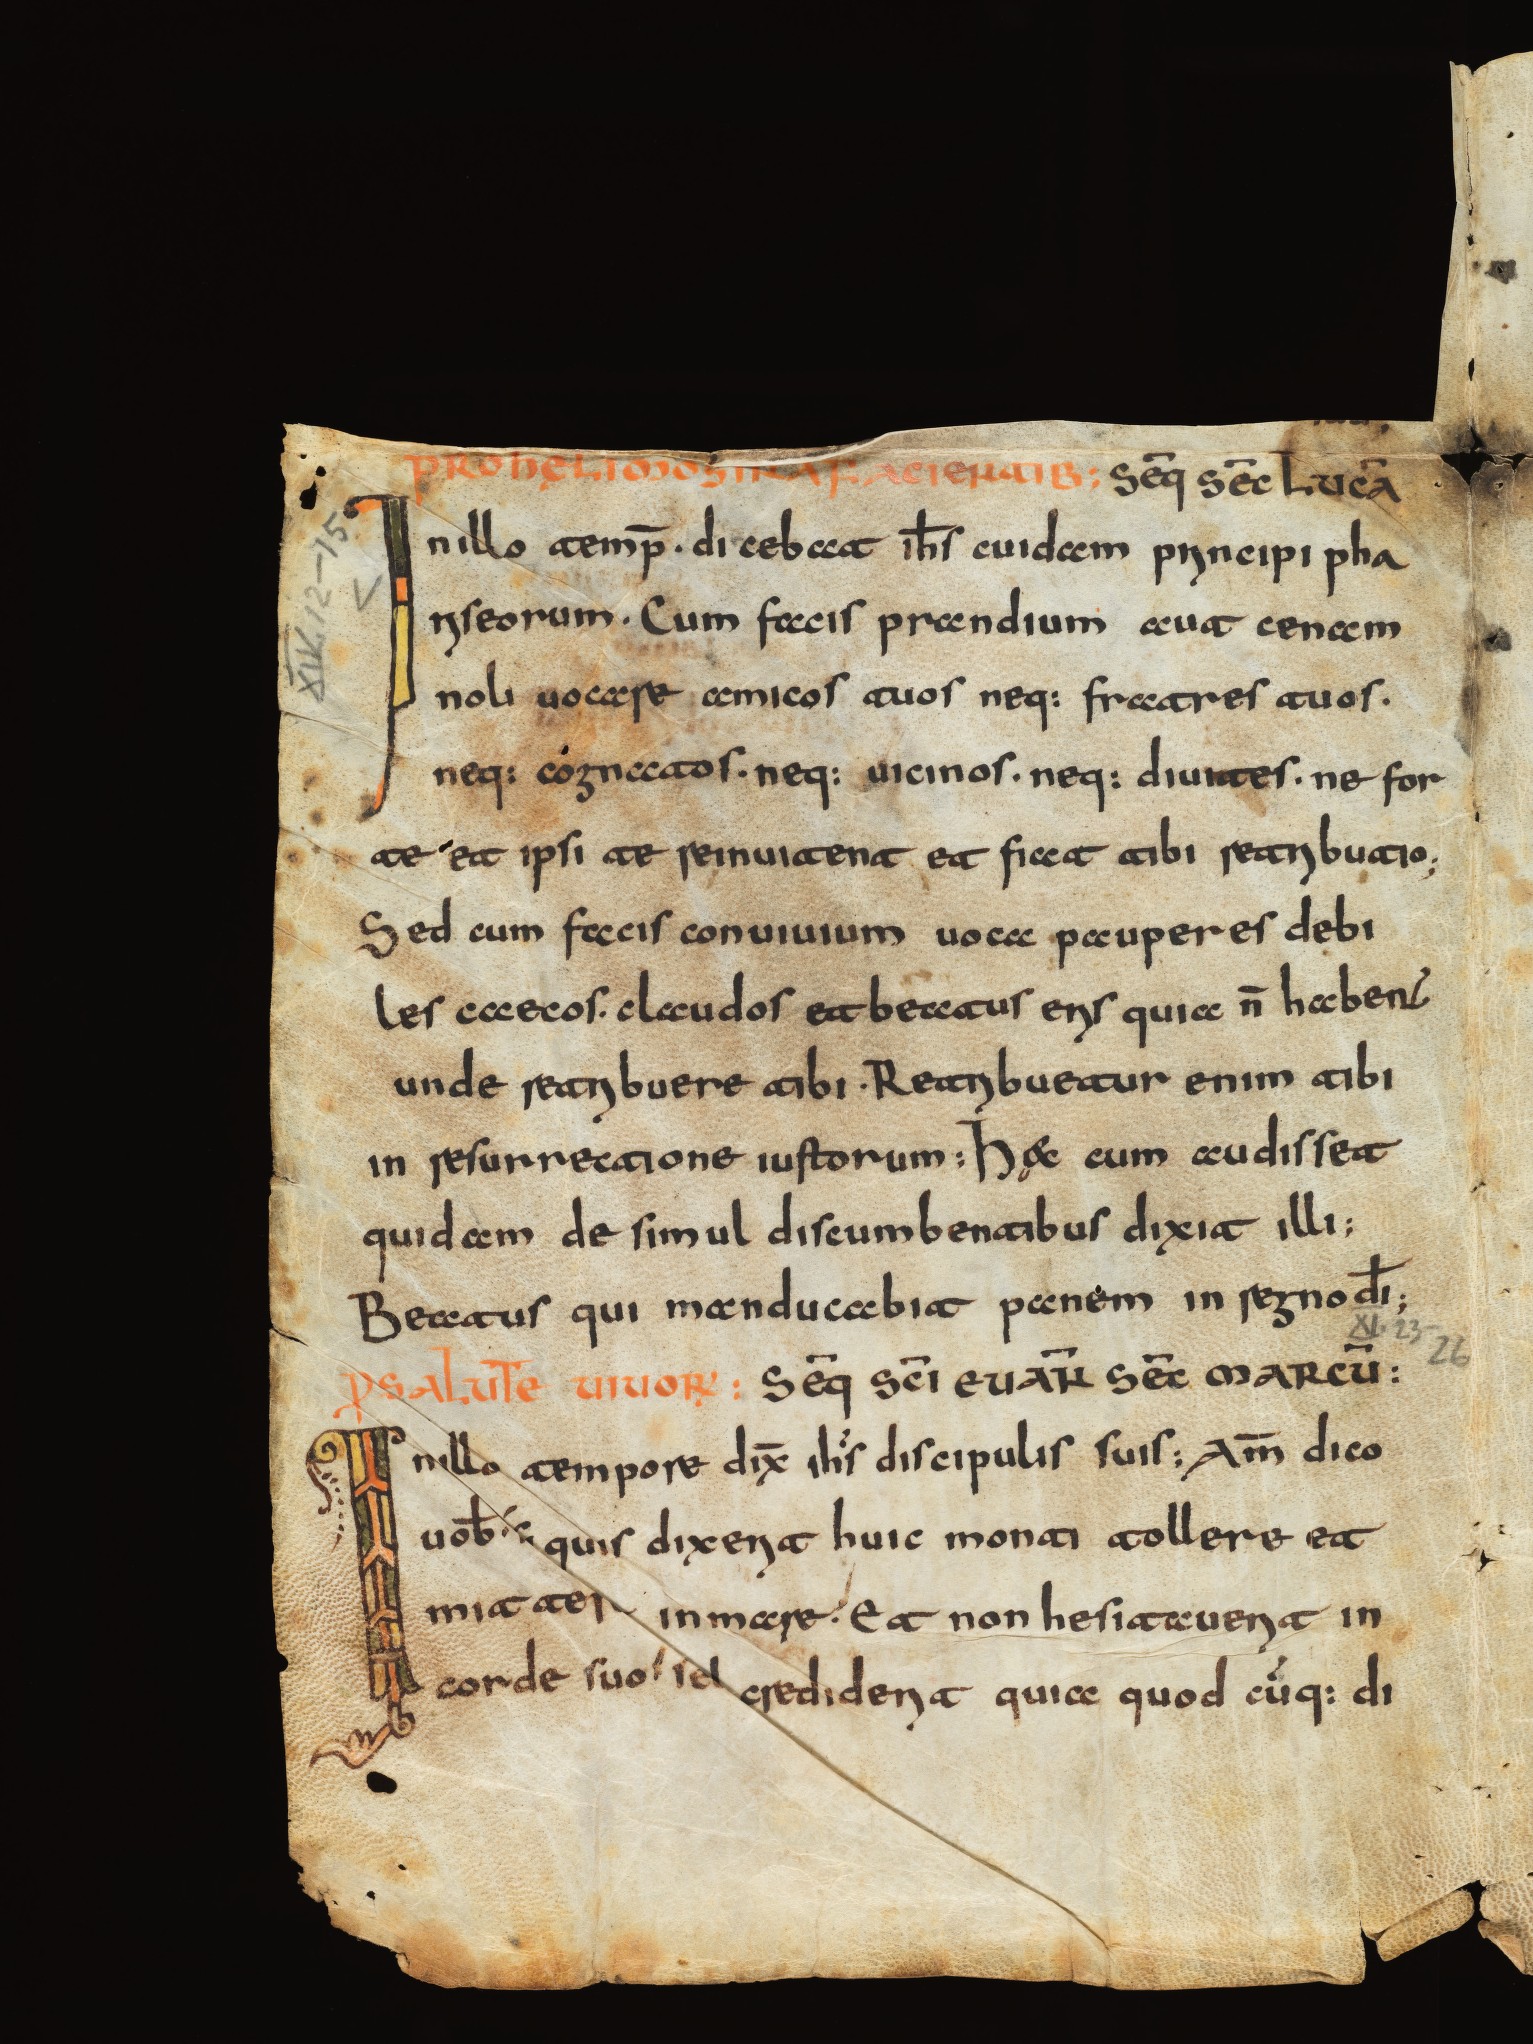 PRO HELIMOSINAS FACIENTIB: SEQ̄ SEC̄ LUCĀ
In illo temp̄. dicebat ih̄s cuidam principi pha
riseorum. Cum facis prandium aut cenam
noli uocare amicos tuos neq: fratres tuos.
neq: cognatos. neq: uicinos. neq: diuites. ne for
te et ipsi te reinuitent et fiat tibi retributio;
Sed cum facis conuiuium uoca pauperes debi
les caecos. claudos et beatus eris quia n̄ habent
unde retribuere tibi. Retribuetur enim tibi
in resurrectione iustorum: Hęc cum audisset
quidam de simul discumbentibus dixit illi;
Beatus qui manducabit panem in regno dī;
XIV. 12-15
XI. 23-26
P SALUTE UIUOR: SEQ̄ SC̄I EUAN̄ SEC̄ MARCŪ:
In illo tempore dix̄ ih̄s discipulis suis; Am̄ dico
uob̄ quis dixerit huic monti tollere et
mitte in mare. Et non hesitauerit in
corde suo sed crediderit quia quod cūq: di